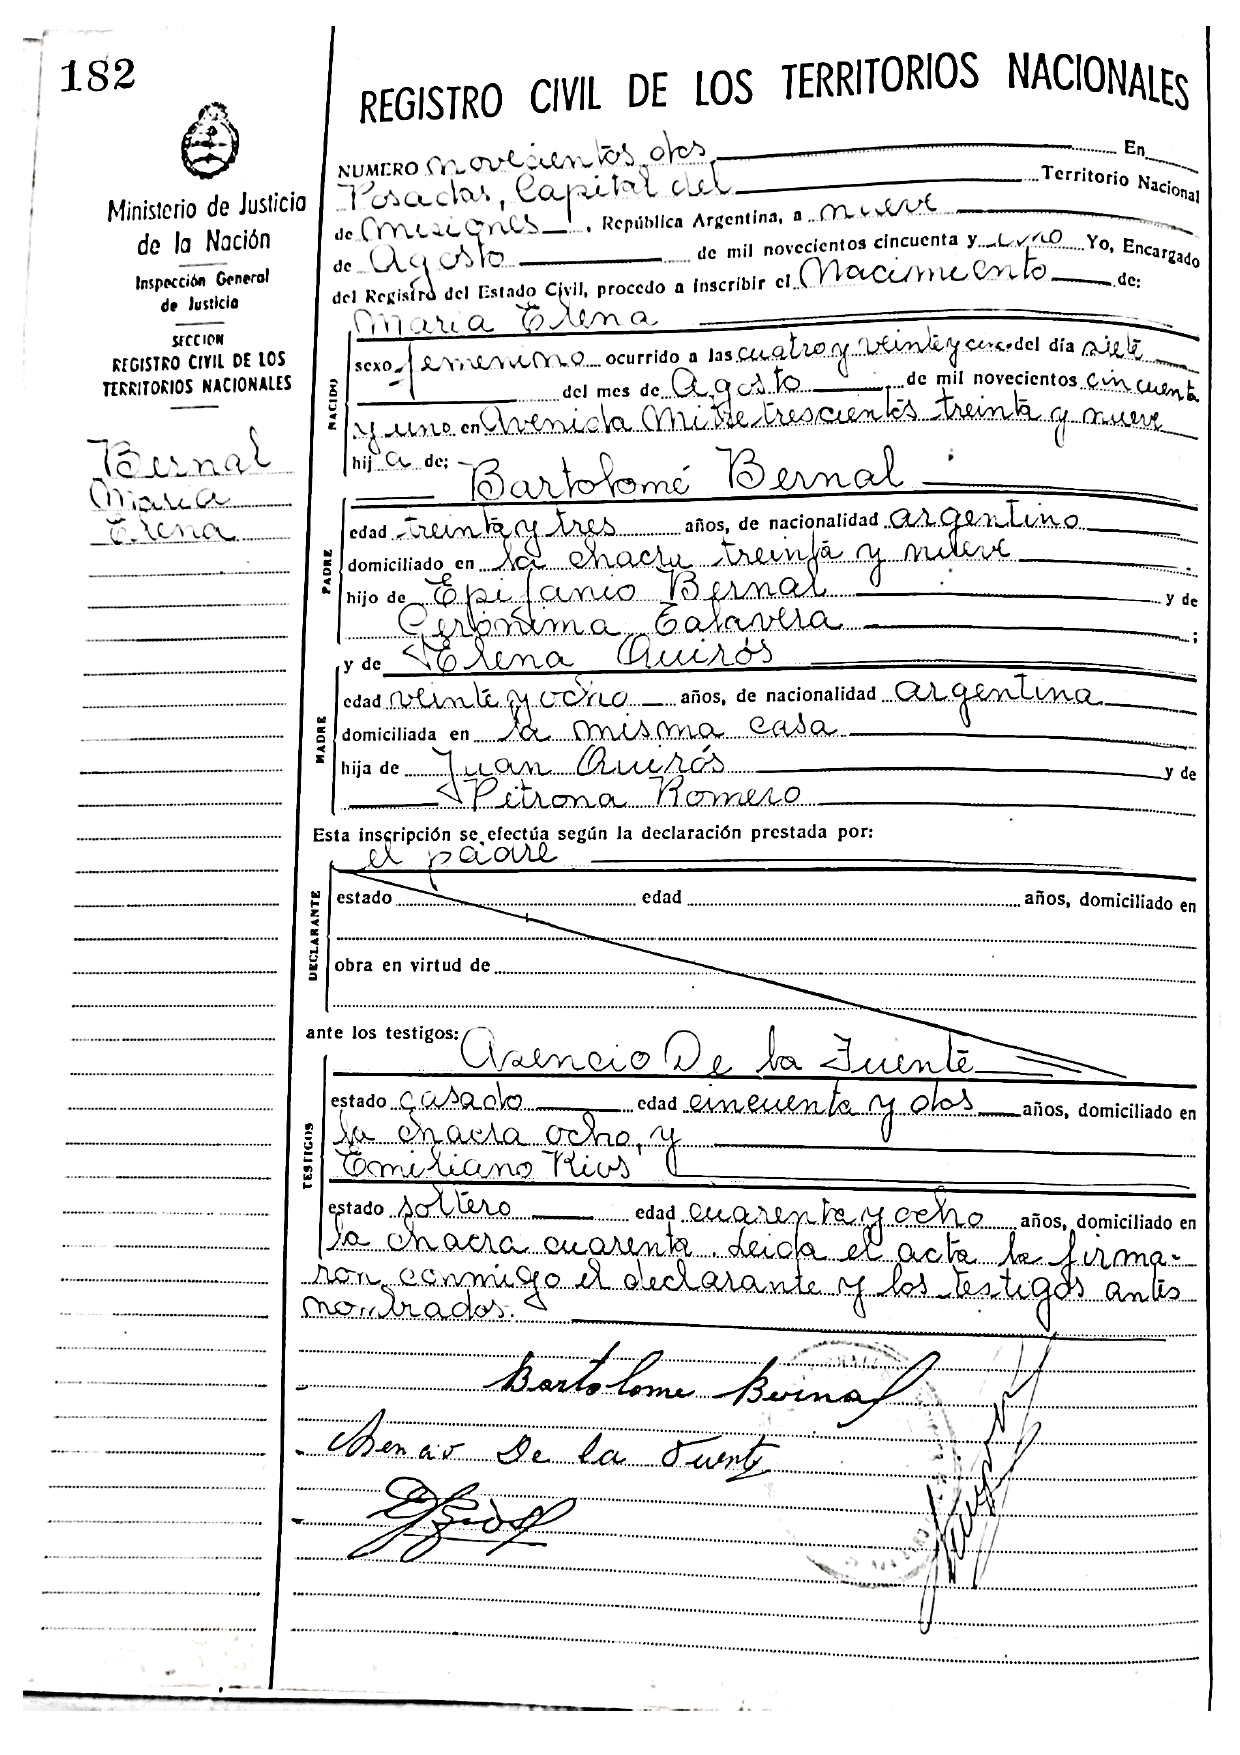 182
REGISTRO CIVIL DE LOS TERRITORIOS NACIONALES
Ministerio de Justicia
de la Nación
Inspección General
de Justicia
SECCION
REGISTRO CIVIL DE LOS
TERRITORIOS NACIONALES
Bernal
Maria
Elena
NUMERO novecientos dos En
Posadas, Capital del Territorio Nacional
de Misiones, República Argentina, a nueve
de Agosto de mil novecientos cincuenta y uno Yo, Encargado
del Registro del Estado Civil, procedo a inscribir el Nacimiento de:
Maria Elena
NACIDO
sexo femenino ocurrido a las cuatro y veinte y cinc. del día siete
del mes de Agosto de mil novecientos cincuenta
y uno en Avenida Mitre trescientos treinta y nueve
hija de:
Bartolomé Bernal
PADRE
edad treinta y tres años, de nacionalidad argentino
domiciliado en la chacra treinta y nueve
hijo de Epifanio Bernal y de
Gerónima Talavera ;
y de Elena Quirós
MADRE
edad veinte y ocho años, de nacionalidad argentina
domiciliada en la misma casa
hija de Juan Quirós y de
Petrona Romero
Esta inscripción se efectúa según la declaración prestada por:
el padre
DECLARANTE
estado edad años, domiciliado en
obra en virtud de
ante los testigos:
Asencio De la Fuente
TESTIGOS
estado casado edad cincuenta y dos años, domiciliado en
la chacra ocho, y
Emiliano Rios
estado soltero edad cuarenta y ocho años, domiciliado en
la chacra cuarenta. Leida el acta la firma-
ron conmigo el declarante y los testigos antes
nombrados.
Bartolome Bernal
Asencio De la Fuente